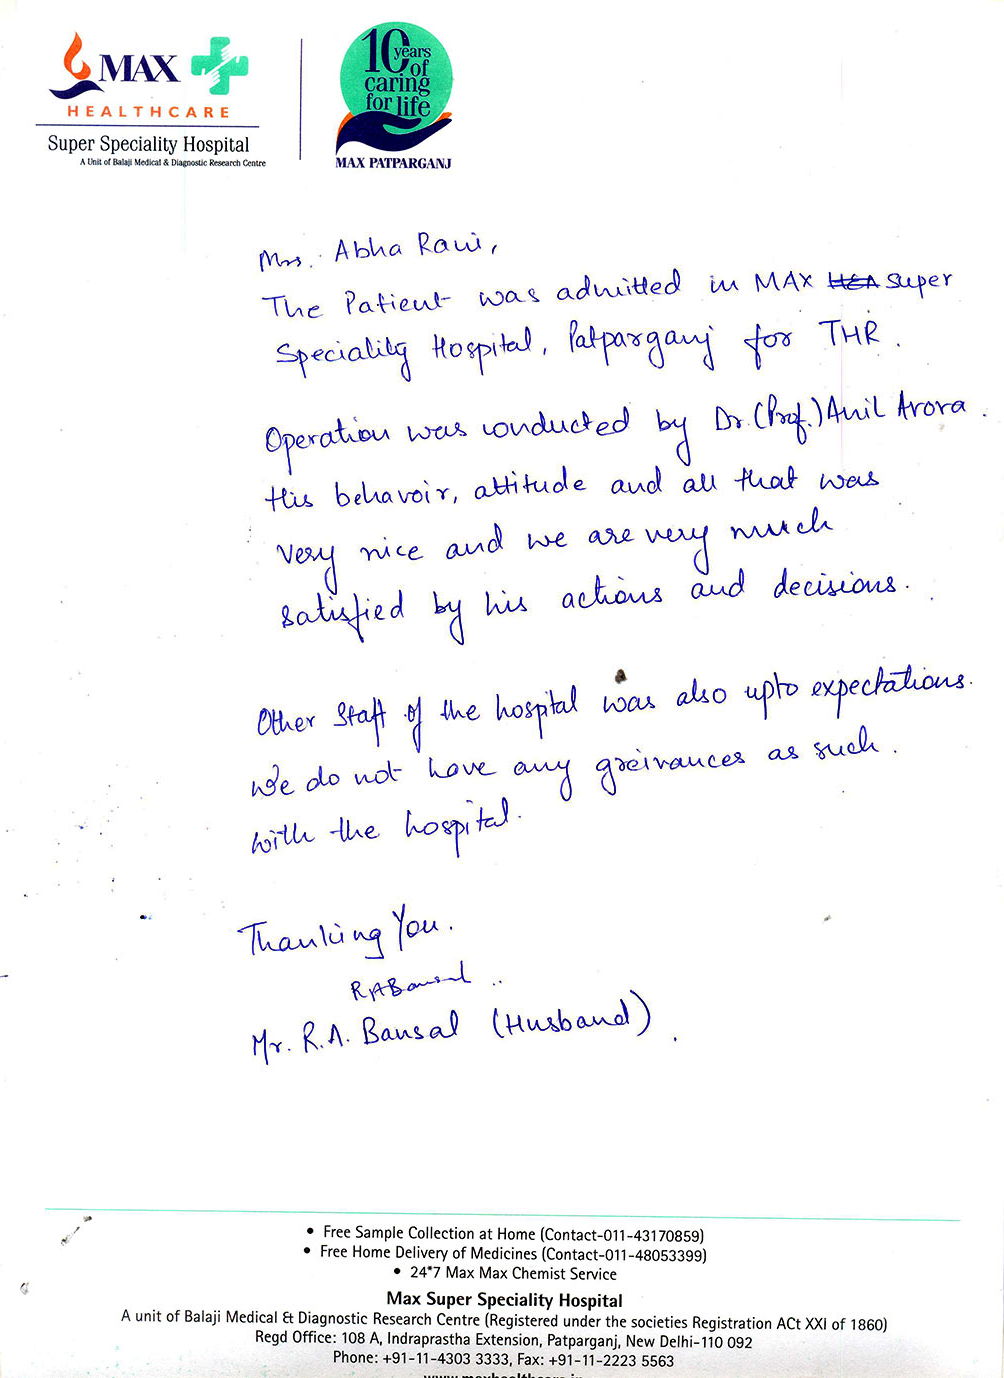 MAX
HEALTHCARE
Super Speciality Hospital
A Unit of Balaji Medical & Diagnostic Research Centre
10 years
of
caring
for life
MAX PATPARGANJ
Mrs. Abha Rani,
The Patient was admitted in MAX HEA super
Speciality Hospital, Patparganj for THR.
Operation was conducted by Dr. (Prof.) Anil Arora.
His behavoir, attitude and all that was
very nice and we are very much
satisfied by his actions and decisions.
Other Staff of the hospital was also upto expectations.
We do not have any greivances as such.
with the hospital.
Thanking You.
RABansal
Mr. R.A. Bansal (Husband)
• Free Sample Collection at Home (Contact-011-43170859)
• Free Home Delivery of Medicines (Contact-011-48053399)
• 24*7 Max Max Chemist Service
Max Super Speciality Hospital
A unit of Balaji Medical & Diagnostic Research Centre (Registered under the societies Registration ACt XXI of 1860)
Regd Office: 108 A, Indraprastha Extension, Patparganj, New Delhi-110 092
Phone: +91-11-4303 3333, Fax: +91-11-2223 5563
www.maxhealthcare.in